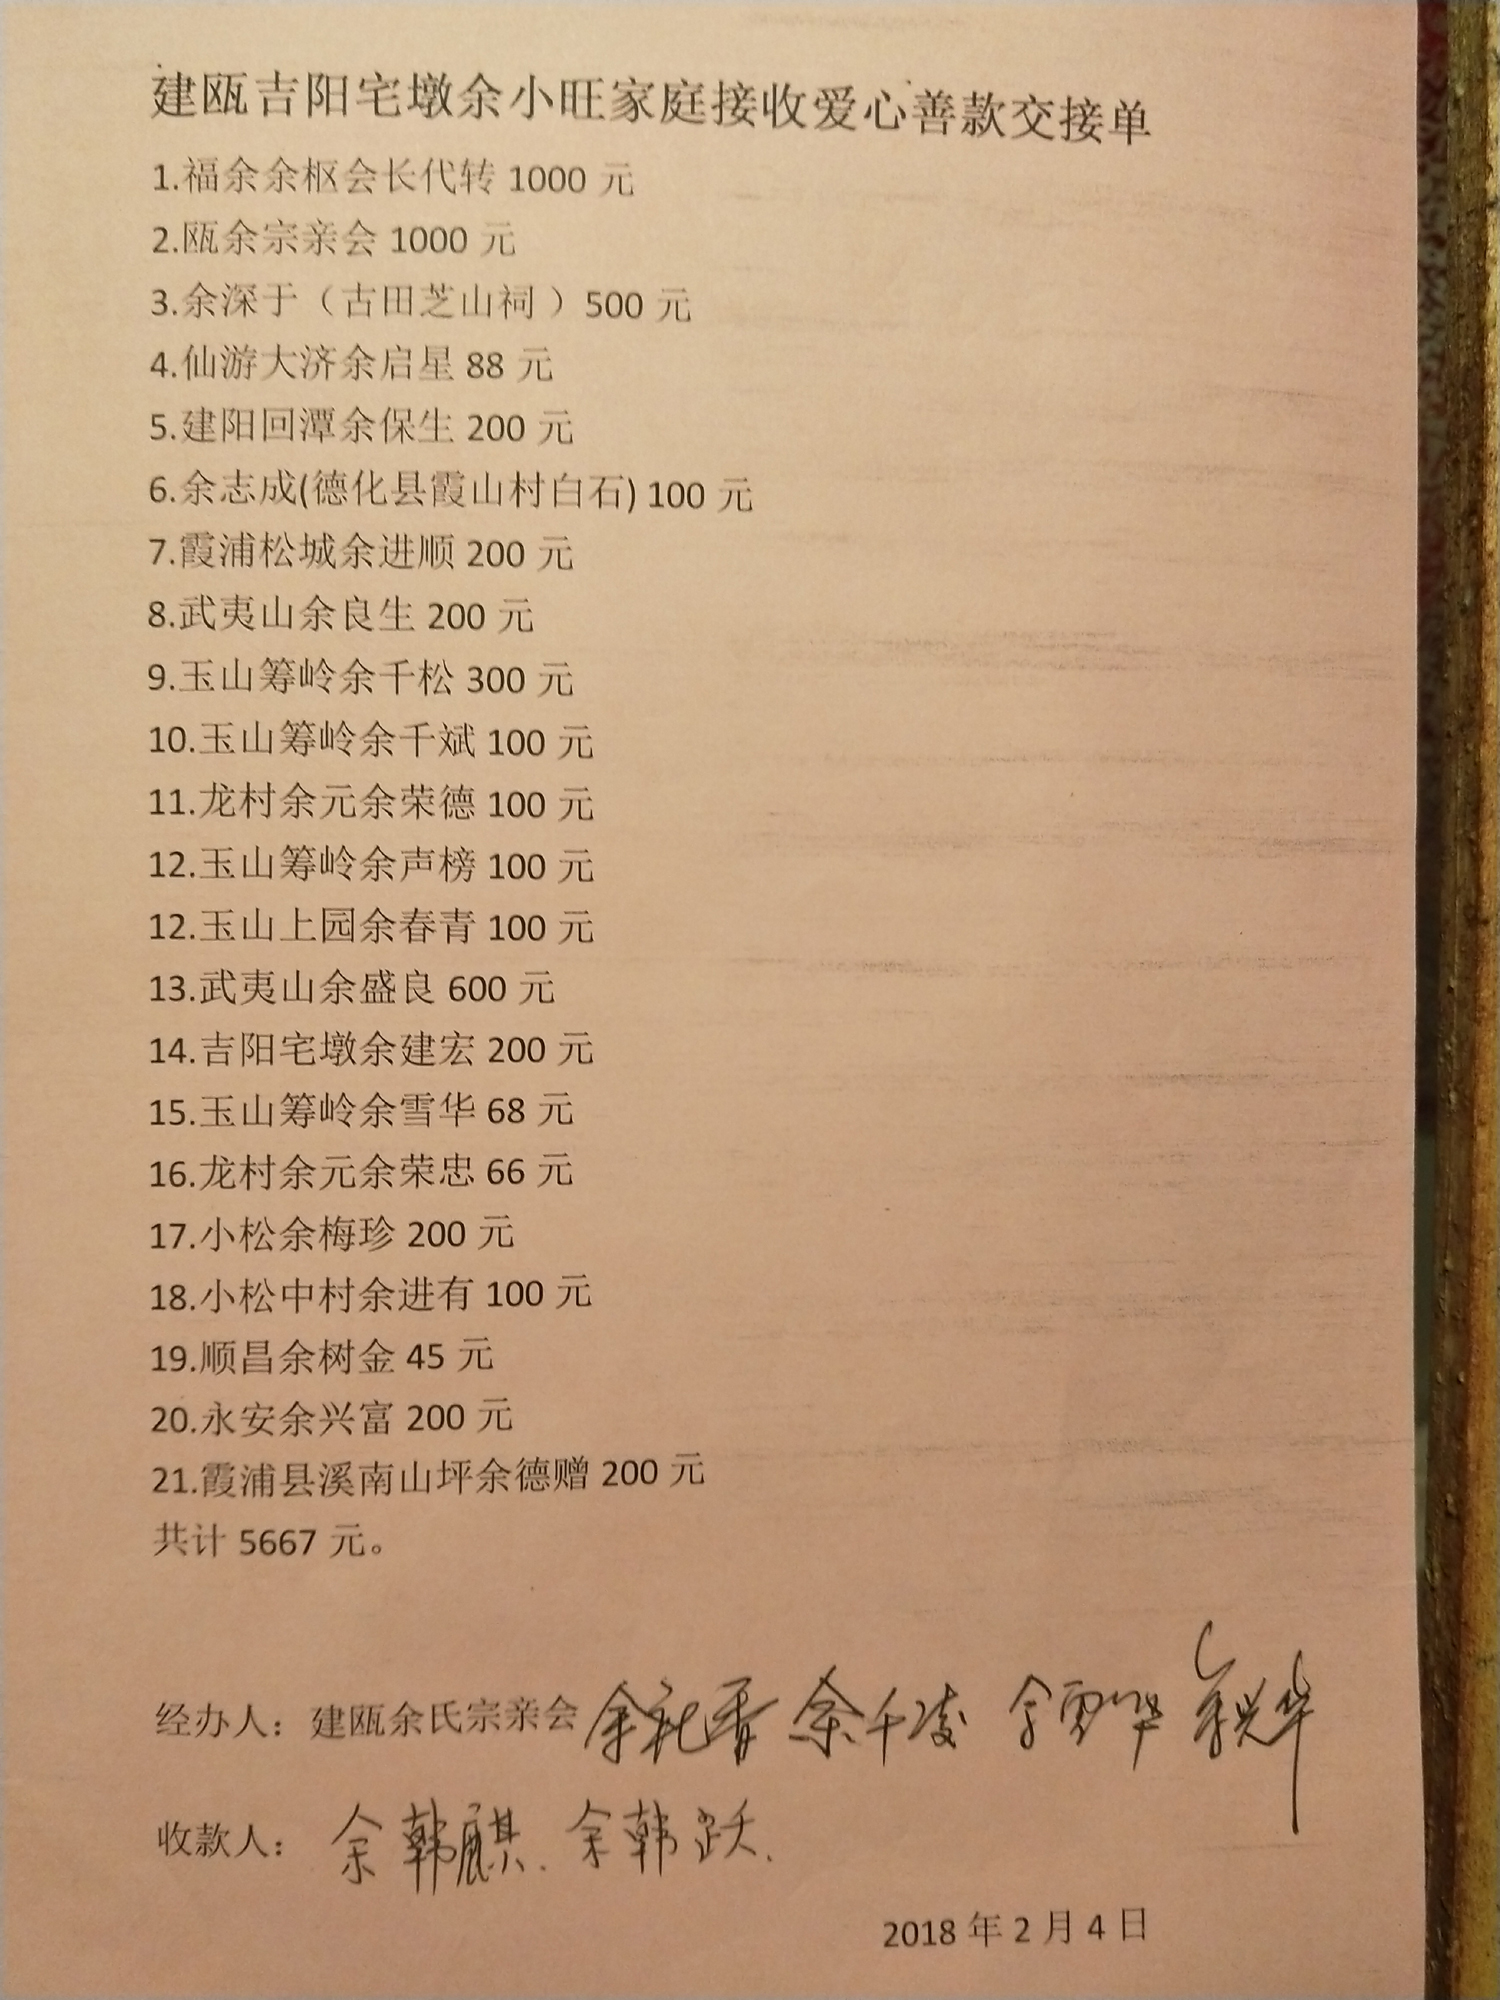 建瓯吉阳宅墩余小旺家庭接收爱心善款交接单
1.福余余枢会长代转 1000 元
2.瓯余宗亲会 1000 元
3.余深于（古田芝山祠 ）500 元
4.仙游大济余启星 88 元
5.建阳回潭余保生 200 元
6.余志成(德化县霞山村白石) 100 元
7.霞浦松城余进顺 200 元
8.武夷山余良生 200 元
9.玉山筹岭余千松 300 元
10.玉山筹岭余千斌 100 元
11.龙村余元余荣德 100 元
12.玉山筹岭余声榜 100 元
12.玉山上园余春青 100 元
13.武夷山余盛良 600 元
14.吉阳宅墩余建宏 200 元
15.玉山筹岭余雪华 68 元
16.龙村余元余荣忠 66 元
17.小松余梅珍 200 元
18.小松中村余进有 100 元
19.顺昌余树金 45 元
20.永安余兴富 200 元
21.霞浦县溪南山坪余德赠 200 元
共计 5667 元。
经办人：建瓯余氏宗亲会 余礼香 余千凌 余雪华 余兴华
收款人： 余韩麒. 余韩跃.
2018 年 2 月 4 日